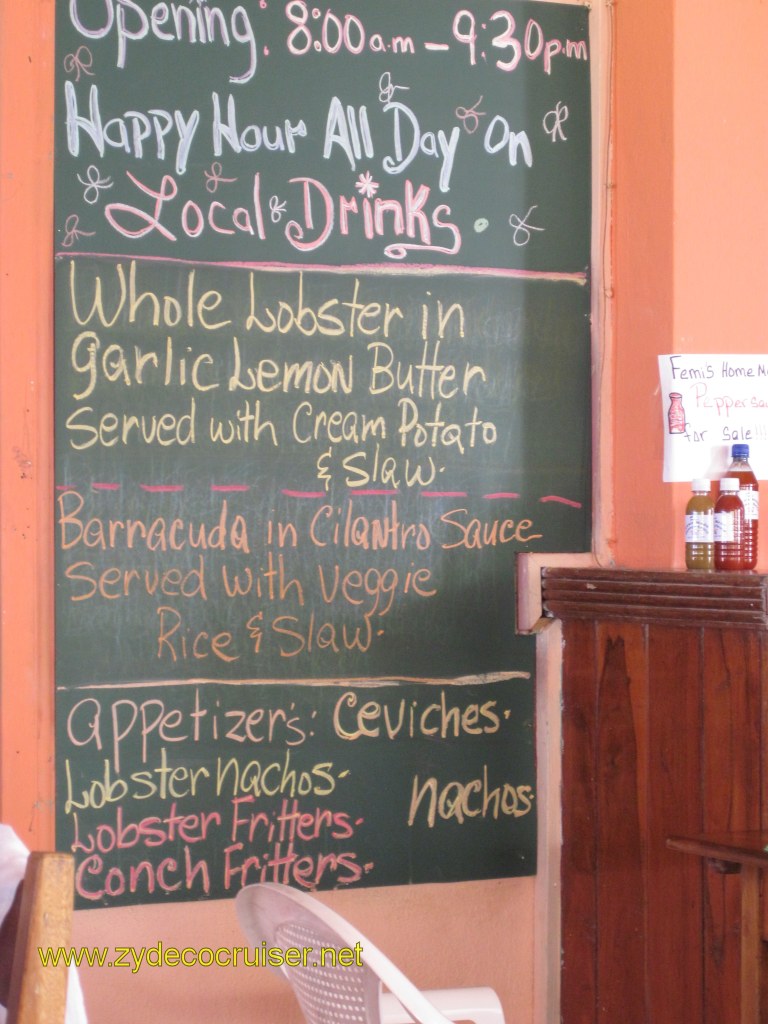 Opening: 8:00 a.m - 9:30 p.m
Happy Hour All Day On
Local Drinks.
Whole Lobster in
garlic Lemon Butter
Served with Cream Potato
& Slaw.
Barracuda in Cilantro Sauce
Served with veggie
Rice & Slaw.
appetizer's: Ceviches.
Lobster nachos-
nachos.
Lobster Fritters.
Conch Fritters.
Femi's Home
for sale!!!
www.zydecocruiser.net